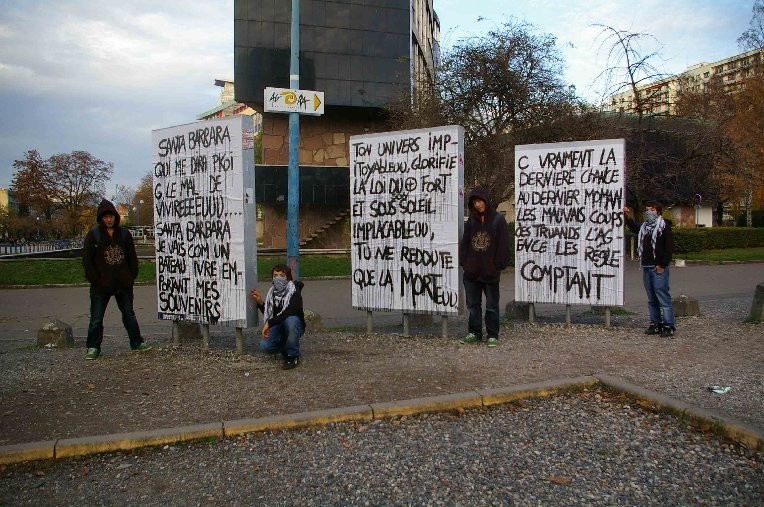 SANTA BARBARA
QUI ME DIRA PKOI
G LE MAL DE
VIVIREEEEUUU...
SANTA BARBARA
JE VAIS COM UN
BATEAU IVRE EM-
PORTANT MES
SOUVENIRS
TON UNIVERS IMP-
ITOYABLEUU, GLORIFIE
LA LOI DU + FORT
ET SOUS SOLEIL
IMPLACABLEUU,
TU NE REDOUTE
QUE LA MORTEUU
C VRAIMENT LA
DERNIERE CHANCE
AU DERNIER MOMAN
LES MAUVAIS COUPS
DES TRUANDS L'AG
ENCE LES RÈGLE
COMPTANT